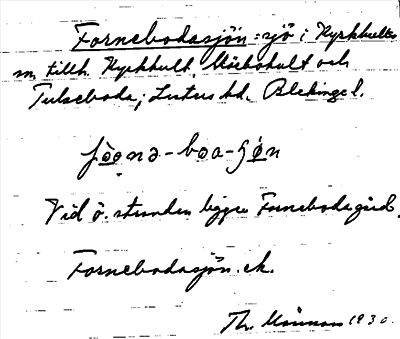 Fornebodasjön = sjö i Kyrkhults
sn, tillh. Kyrkhult, Mörkshult och
Tulseboda; Listers hd. Blekinge l.
fo̤o̤nə-boa-ʃö́n
Vid ö. stranden ligger Furneboda gård.
Fornebodasjön. ek.
Th. 1930.